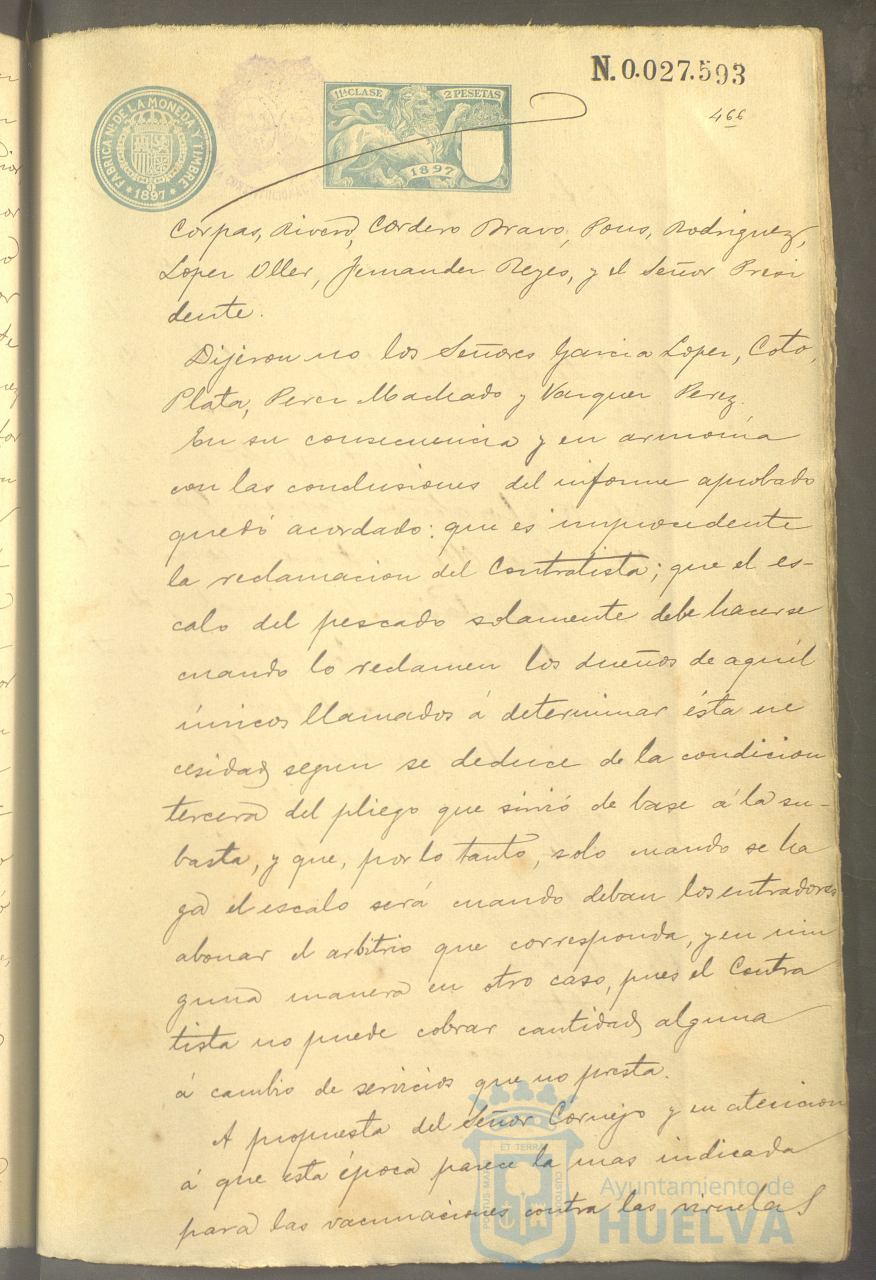 N. 0.027.593
466
FABRICA NL. DE LA MONEDA Y TIMBRE
1897
11ª CLASE 2 PESETAS
1897
Corpas, Rivero, Cordero Bravo, Pons, Rodriguez,
Lopez Oller, Fernandez Reyes, y el Señor Presi
dente.
Dijeron no los Señores Garcia Lopez, Coto,
Plata, Perez Machado y Vazquez Perez.
En su consecuencia y en armonía
con las conclusiones del informe aprobado
quedó acordado: que es improcedente
la reclamacion del Contratista; que el es-
calo del pescado solamente debe hacerse
cuando lo reclamen los dueños de aquél
únicos llamados á determinar ésta ne
cesidad, segun se deduce de la condicion
tercera del pliego que sirvió de base á la su-
basta, y que, por lo tanto, solo cuando se ha
ga el escalo será cuando deban los entradores
abonar el arbitrio que corresponda, y en nin
guna manera en otro caso, pues el Contra
tista no puede cobrar cantidad alguna
á cambio de servicios que no presta.
A propuesta del Señor Cornejo y en atencion
á que esta época parece la mas indicada
para las vacunaciones contra las viruelas
PORTUS MARIS ET TERRAE CUSTODIA
Ayuntamiento de
HUELVA